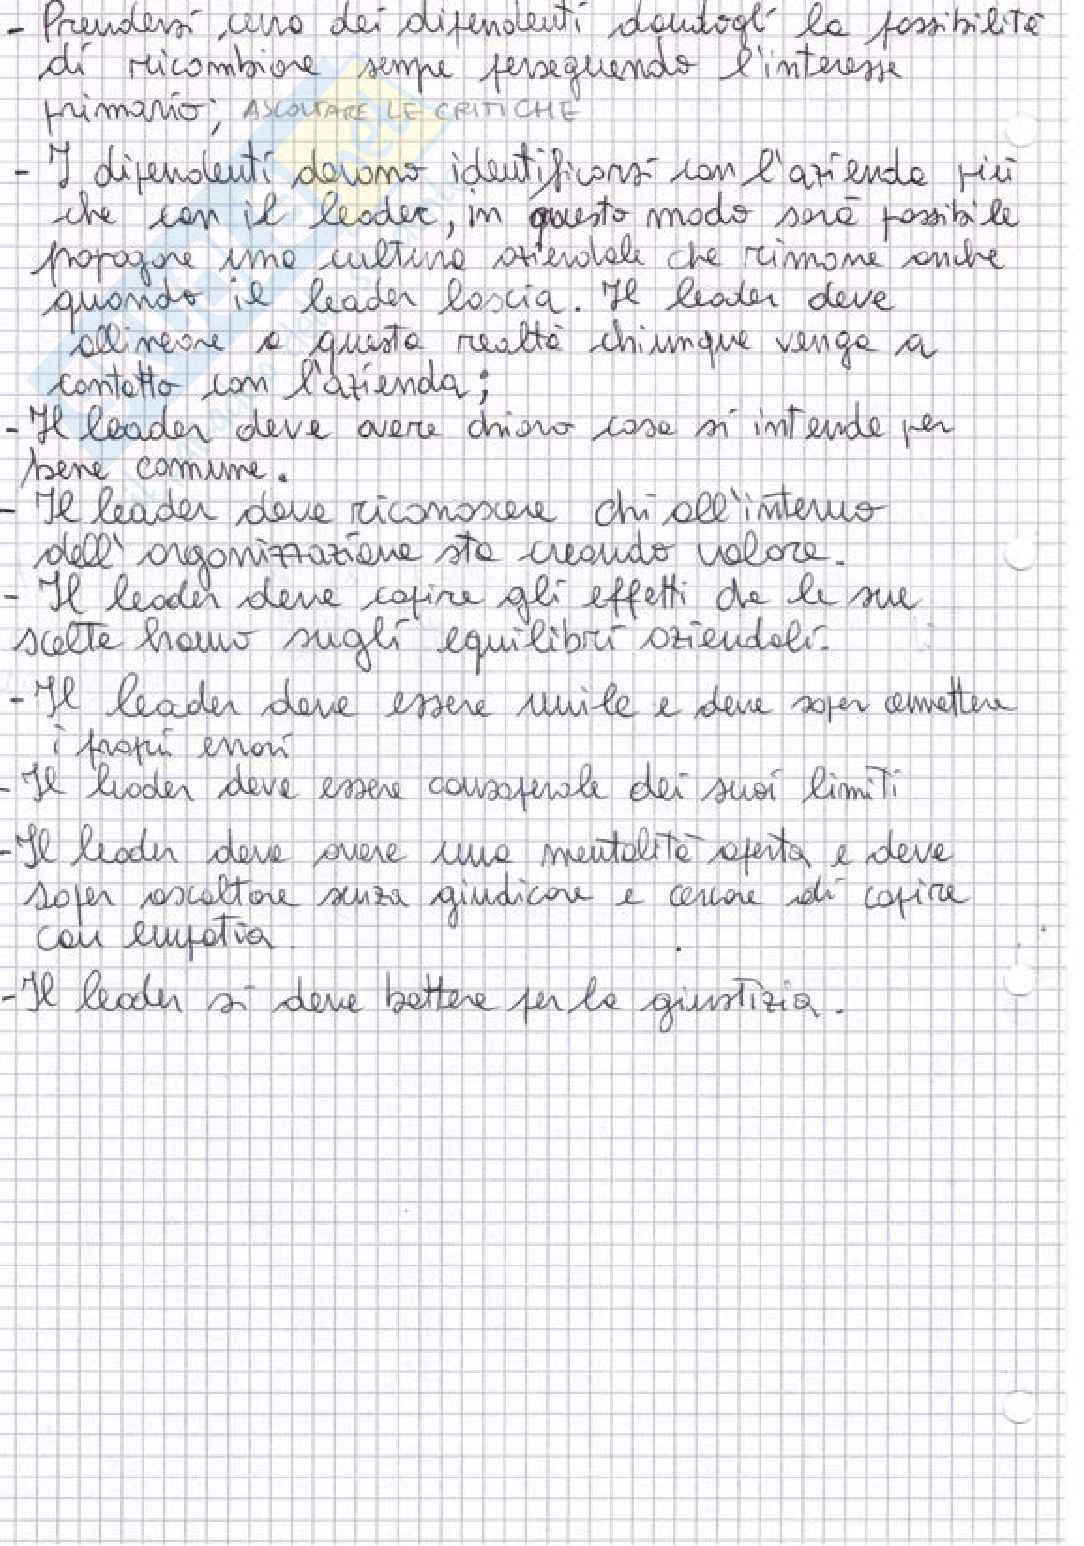 - Prendersi cura dei dipendenti dandogli la possibilità
di ricambiare sempre perseguendo l'interesse
primario; ASCOLTARE LE CRITICHE
- I dipendenti devono identificarsi con l'azienda più
che con il leader, in questo modo sarà possibile
propagare una cultura aziendale che rimane anche
quando il leader lascia. Il leader deve
allineare a questa realtà chiunque venga a
contatto con l'azienda;
- Il leader deve avere chiaro cosa si intende per
bene comune.
- Il leader deve riconoscere chi all'interno
dell'organizzazione sta creando valore.
- Il leader deve capire gli effetti che le sue
scelte hanno sugli equilibri aziendali.
- Il leader deve essere umile e deve saper ammettere
i propri errori
- Il leader deve essere consapevole dei suoi limiti
- Il leader deve avere una mentalità aperta e deve
saper ascoltare senza giudicare e cercare di capire
con empatia
- Il leader si deve battere per la giustizia.